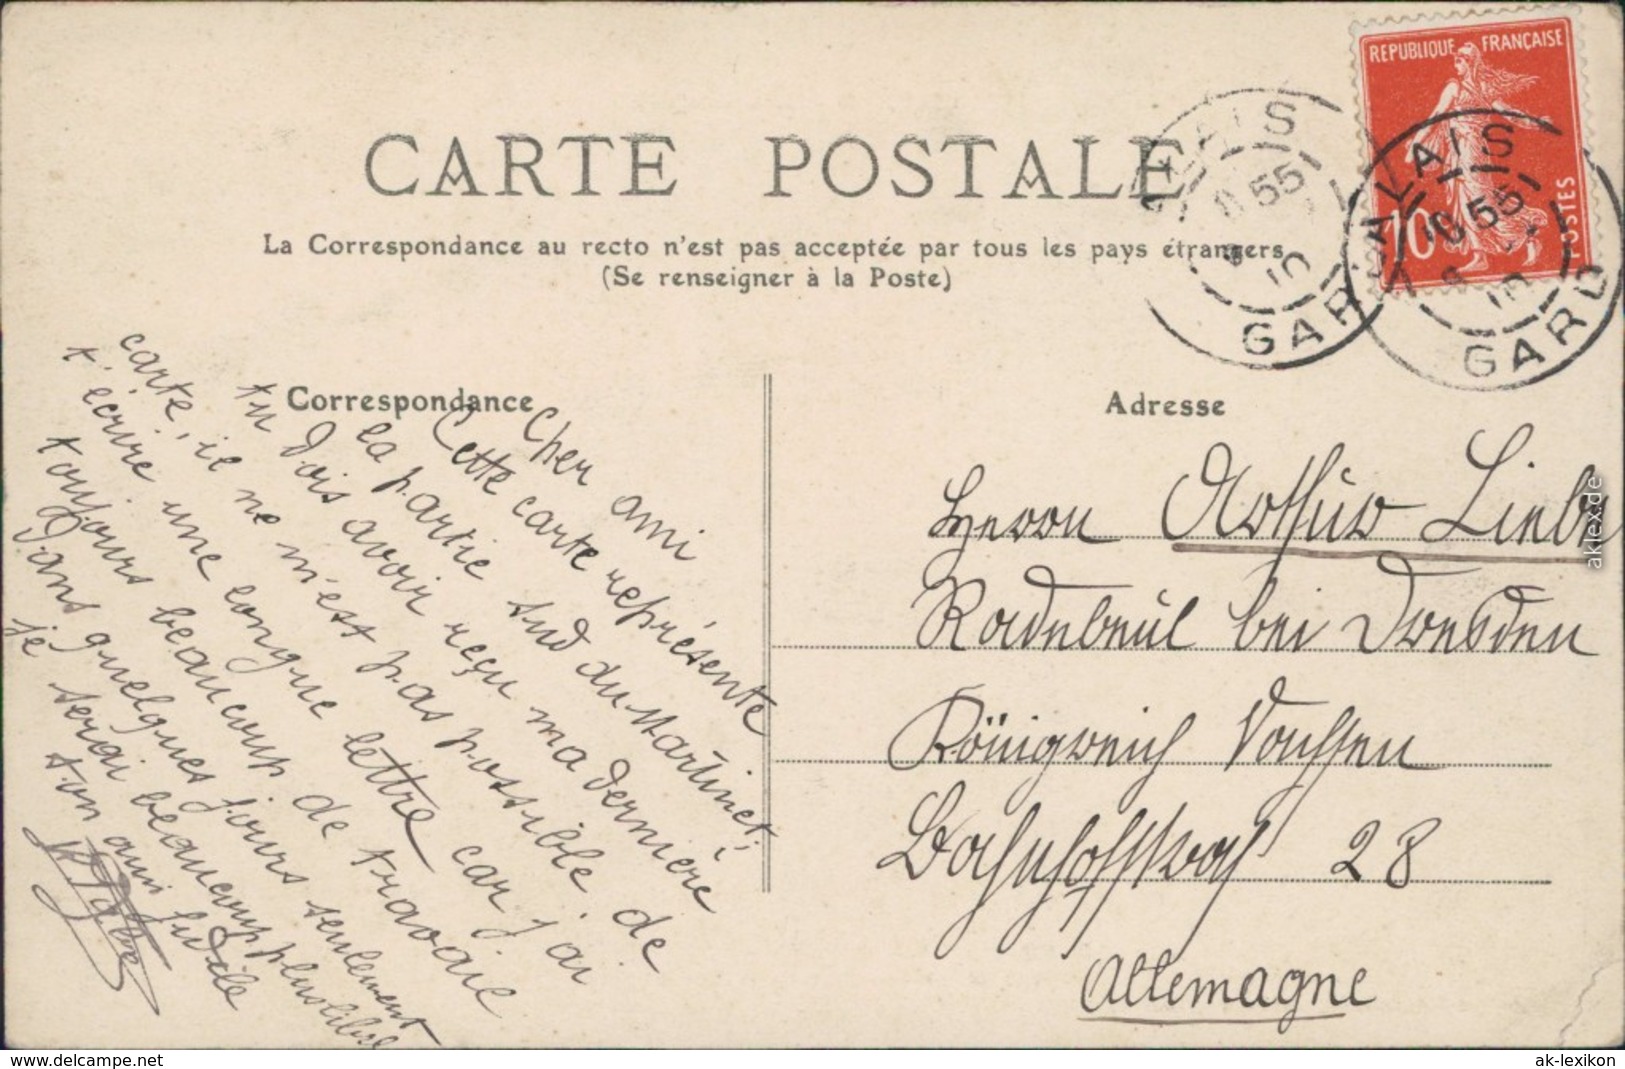 CARTE POSTALE
La Correspondance au recto n'est pas acceptée par tous les pays étrangers
(Se renseigner à la Poste)
REPUBLIQUE FRANÇAISE
10
POSTES
ALAIS
10 55
10
GARD
ALAIS
10 55
10
GARD
Correspondance
Cher ami
Cette carte représente
la partie sud du Martinet;
tu dois avoir reçu ma dernière
carte, il ne m'est pas possible de
t'écrire une longue lettre car j'ai
toujours beaucoup de travail
Dans quelques jours seulement
je serai beaucoup plus libre
ton ami fidèle
Adresse
Herrn Arthur Liebe
Radebeul bei Dresden
Königreich Sachsen
Bahnhofstraße 28
Allemagne
aklex.de
www.delcampe.net
ak-lexikon